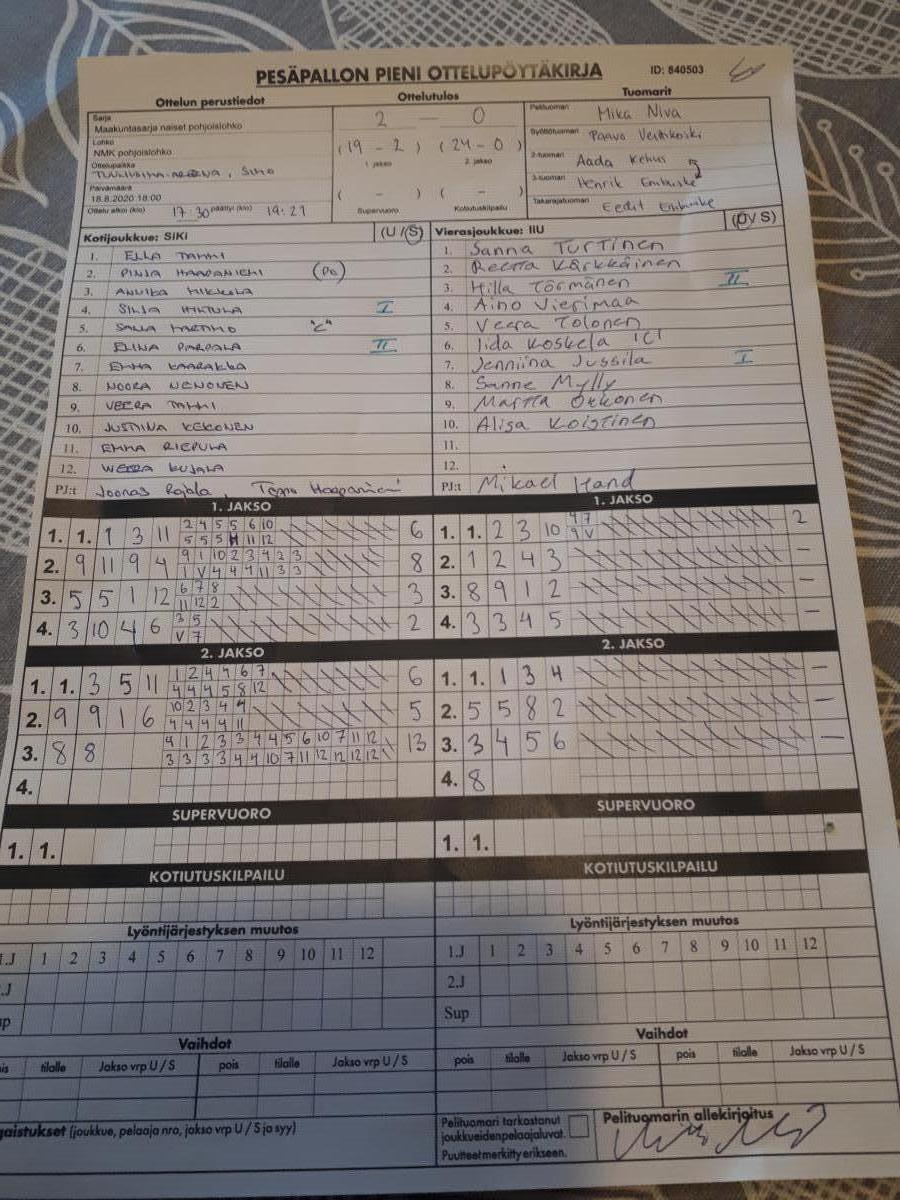 PESÄPALLON PIENI OTTELUPÖYTÄKIRJA ID: 840503
Ottelun perustiedot Ottelutulos Tuomarit
Sarja
Maakuntasarja naiset pohjoislohko
Lohko
NMK pohjoislohko
Ottelupaikka
TUULIVOIMA-AREENA, SIMO
Päivämäärä
18.8.2020 18:00
Ottelu alkoi (klo) 17:30 päättyi (klo) 19:21
2 — 0
(19 - 2) (24 - 0)
1. jakso 2. jakso
( - ) ( - )
Supervuoro Kotiutuskilpailu
Pelituomari Mika Niva
Syöttötuomari Paavo
2-tuomari Aada Kehus
3-tuomari Henrik
Takarajatuomari Eedit
Kotijoukkue: SiKi (U / S)
1. ELLA TAMMI
2. PINJA HAAPANIEMI (PO)
3. ANNIKA
4. SILJA I
5. SANNA "C"
6. ELINA II
7. EMMA KAARAKKA
8. NOORA NENONEN
9. VEERA TAMMI
10. JUSTIINA KEKONEN
11. EMMA RIEPULA
12. WEERA KUJALA
PJ:t Joonas Rajala, Teemu Haapaniemi
Vierasjoukkue: IIU (U / S)
1. Sanna Turtinen
2. Reetta Kärkkäinen
3. Hilla Törmänen II
4. Aino Vierimaa
5. Veera Tolonen
6. Iida Koskela
7. Jenniina Jussila I
8. Sanne Mylly
9. Martta Okkonen
10. Alisa Koistinen
11.
12.
PJ:t Mikael Hand
1. JAKSO 1. JAKSO
1. 1. 1 3 11 2 4 5 5 6 10 6
5 5 5 11 11 12
2. 9 11 9 4 9 1 10 2 3 4 2 3 8
1 V 4 4 4 11 3 3
3. 5 5 1 12 6 7 8 3
11 12 2
4. 3 10 4 6 3 5 2
V 7
1. 1. 2 3 10 4 7 2
9 V
2. 1 2 4 3 —
3. 8 9 1 2 —
4. 3 3 4 5 —
2. JAKSO 2. JAKSO
1. 1. 3 5 11 1 2 4 4 6 7 6
4 4 4 5 8 12
2. 9 9 1 6 10 2 3 4 4 5
4 4 4 4 11
3. 8 8 9 1 2 3 3 4 4 5 6 10 7 11 12 13
3 3 3 3 4 4 10 7 11 12 12 12 12
4.
1. 1. 1 3 4 —
2. 5 5 8 2 —
3. 3 4 5 6 —
4. 8
SUPERVUORO SUPERVUORO
1. 1. 1. 1.
KOTIUTUSKILPAILU KOTIUTUSKILPAILU
Lyöntijärjestyksen muutos Lyöntijärjestyksen muutos
1.J 1 2 3 4 5 6 7 8 9 10 11 12 1.J 1 2 3 4 5 6 7 8 9 10 11 12
.J 2.J
up Sup
Vaihdot Vaihdot
is tilalle Jakso vrp U / S pois tilalle Jakso vrp U / S pois tilalle Jakso vrp U / S pois tilalle Jakso vrp U / S
gaistukset (joukkue, pelaaja nro, jakso vrp U / S ja syy)
Pelituomari tarkastanut
joukkueiden pelaajaluvat.
Puutteet merkitty erikseen.
Pelituomarin allekirjoitus